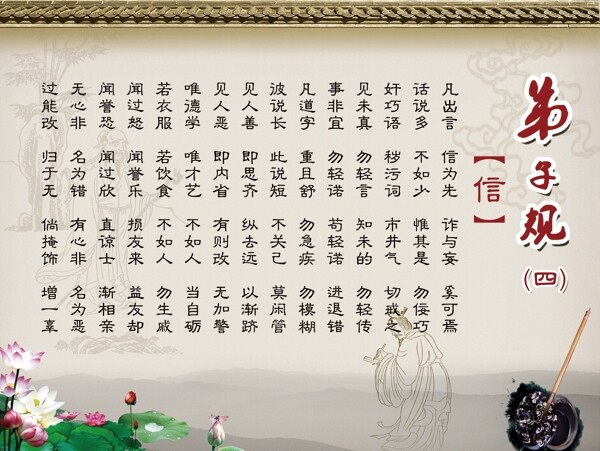 弟子规
(四)
【信】
凡出言 信为先 诈与妄 奚可焉
话说多 不如少 惟其是 勿佞巧
奸巧语 秽污词 市井气 切戒之
见未真 勿轻言 知未的 勿轻传
事非宜 勿轻诺 苟轻诺 进退错
凡道字 重且舒 勿急疾 勿模糊
彼说长 此说短 不关己 莫闲管
见人善 即思齐 纵去远 以渐跻
见人恶 即内省 有则改 无加警
唯德学 唯才艺 不如人 当自砺
若衣服 若饮食 不如人 勿生戚
闻过怒 闻誉乐 损友来 益友却
闻誉恐 闻过欣 直谅士 渐相亲
无心非 名为错 有心非 名为恶
过能改 归于无 倘掩饰 增一辜